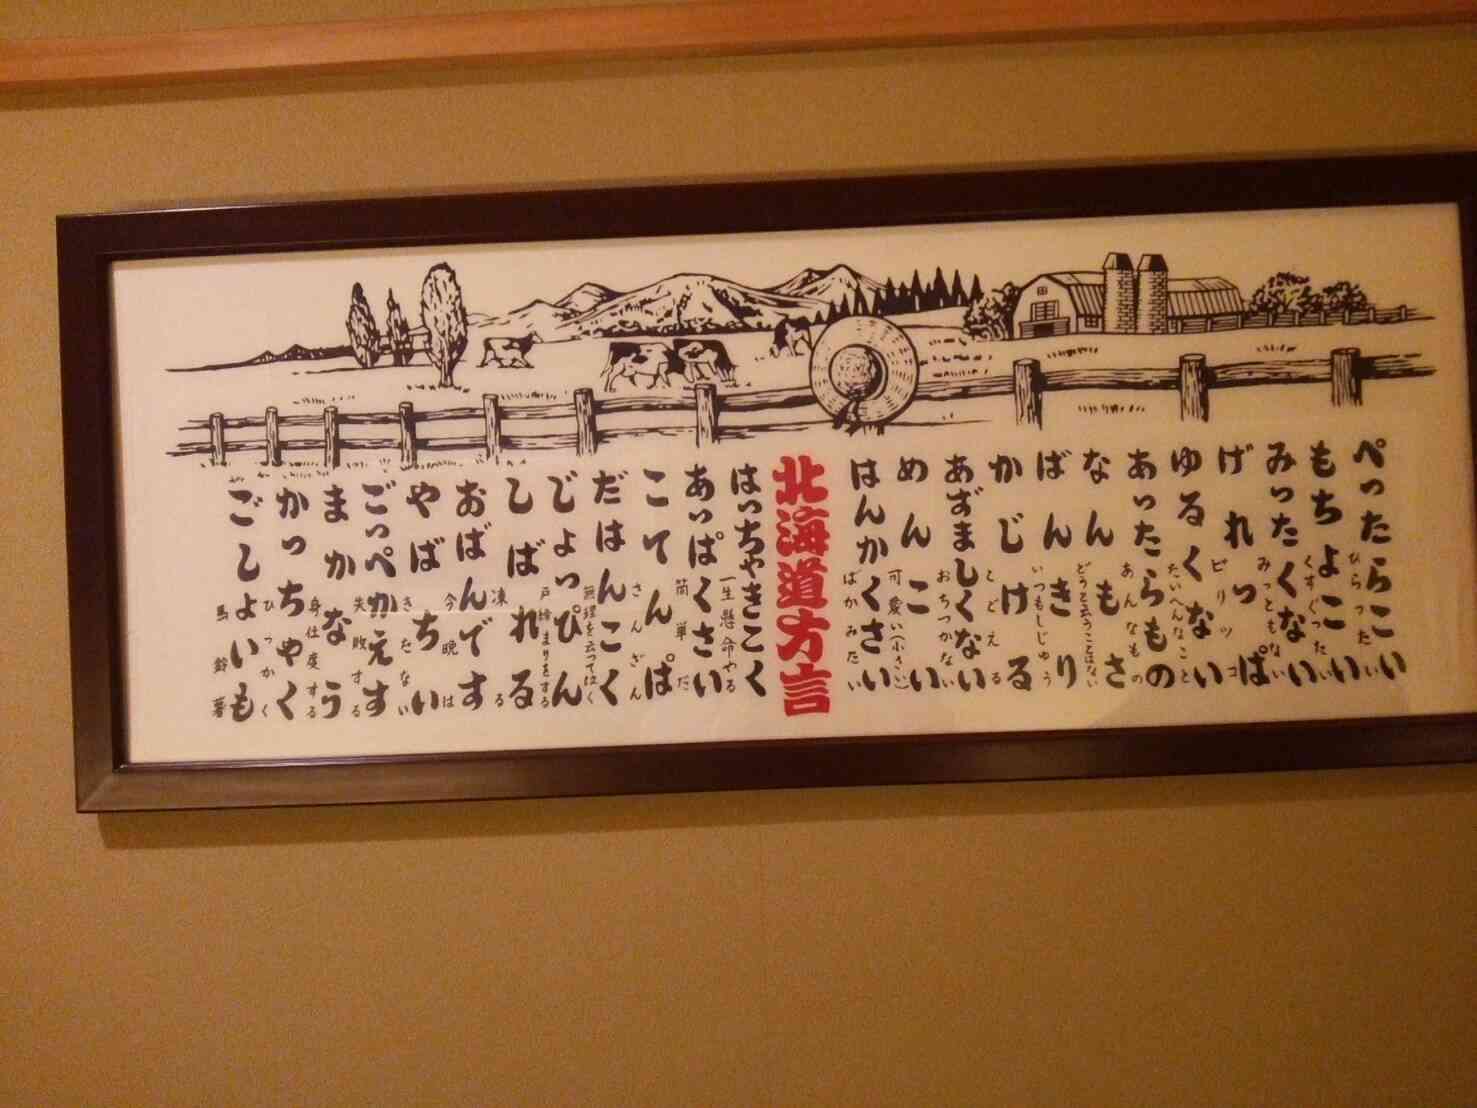 ぺったらこい
ひらったい
もちょこい
くすぐったい
みったくない
みっともない
げれっぱ
ビリッコ
ゆるくない
たいへんなこと
あったらもの
あんなもの
なんもさ
どうと云うことはない
ばんきり
いつもしじゅう
かじける
こごえる
あずましくない
おちつかない
めんこい
可愛い(小さい)
はんかくさい
ばかみたい
北海道方言
はっちゃきこく
一生懸命やる
あっぱくさい
簡単だ
こてんぱ
さんざん
だはんこく
無理を云って泣く
じょっぴん
戸締まりをする
しばれる
凍る
おばんです
今晩は
やばちい
きたない
ごっぺかえす
失敗する
まかなう
身仕度する
かっちゃく
ひっかく
ごしょいも
馬鈴薯